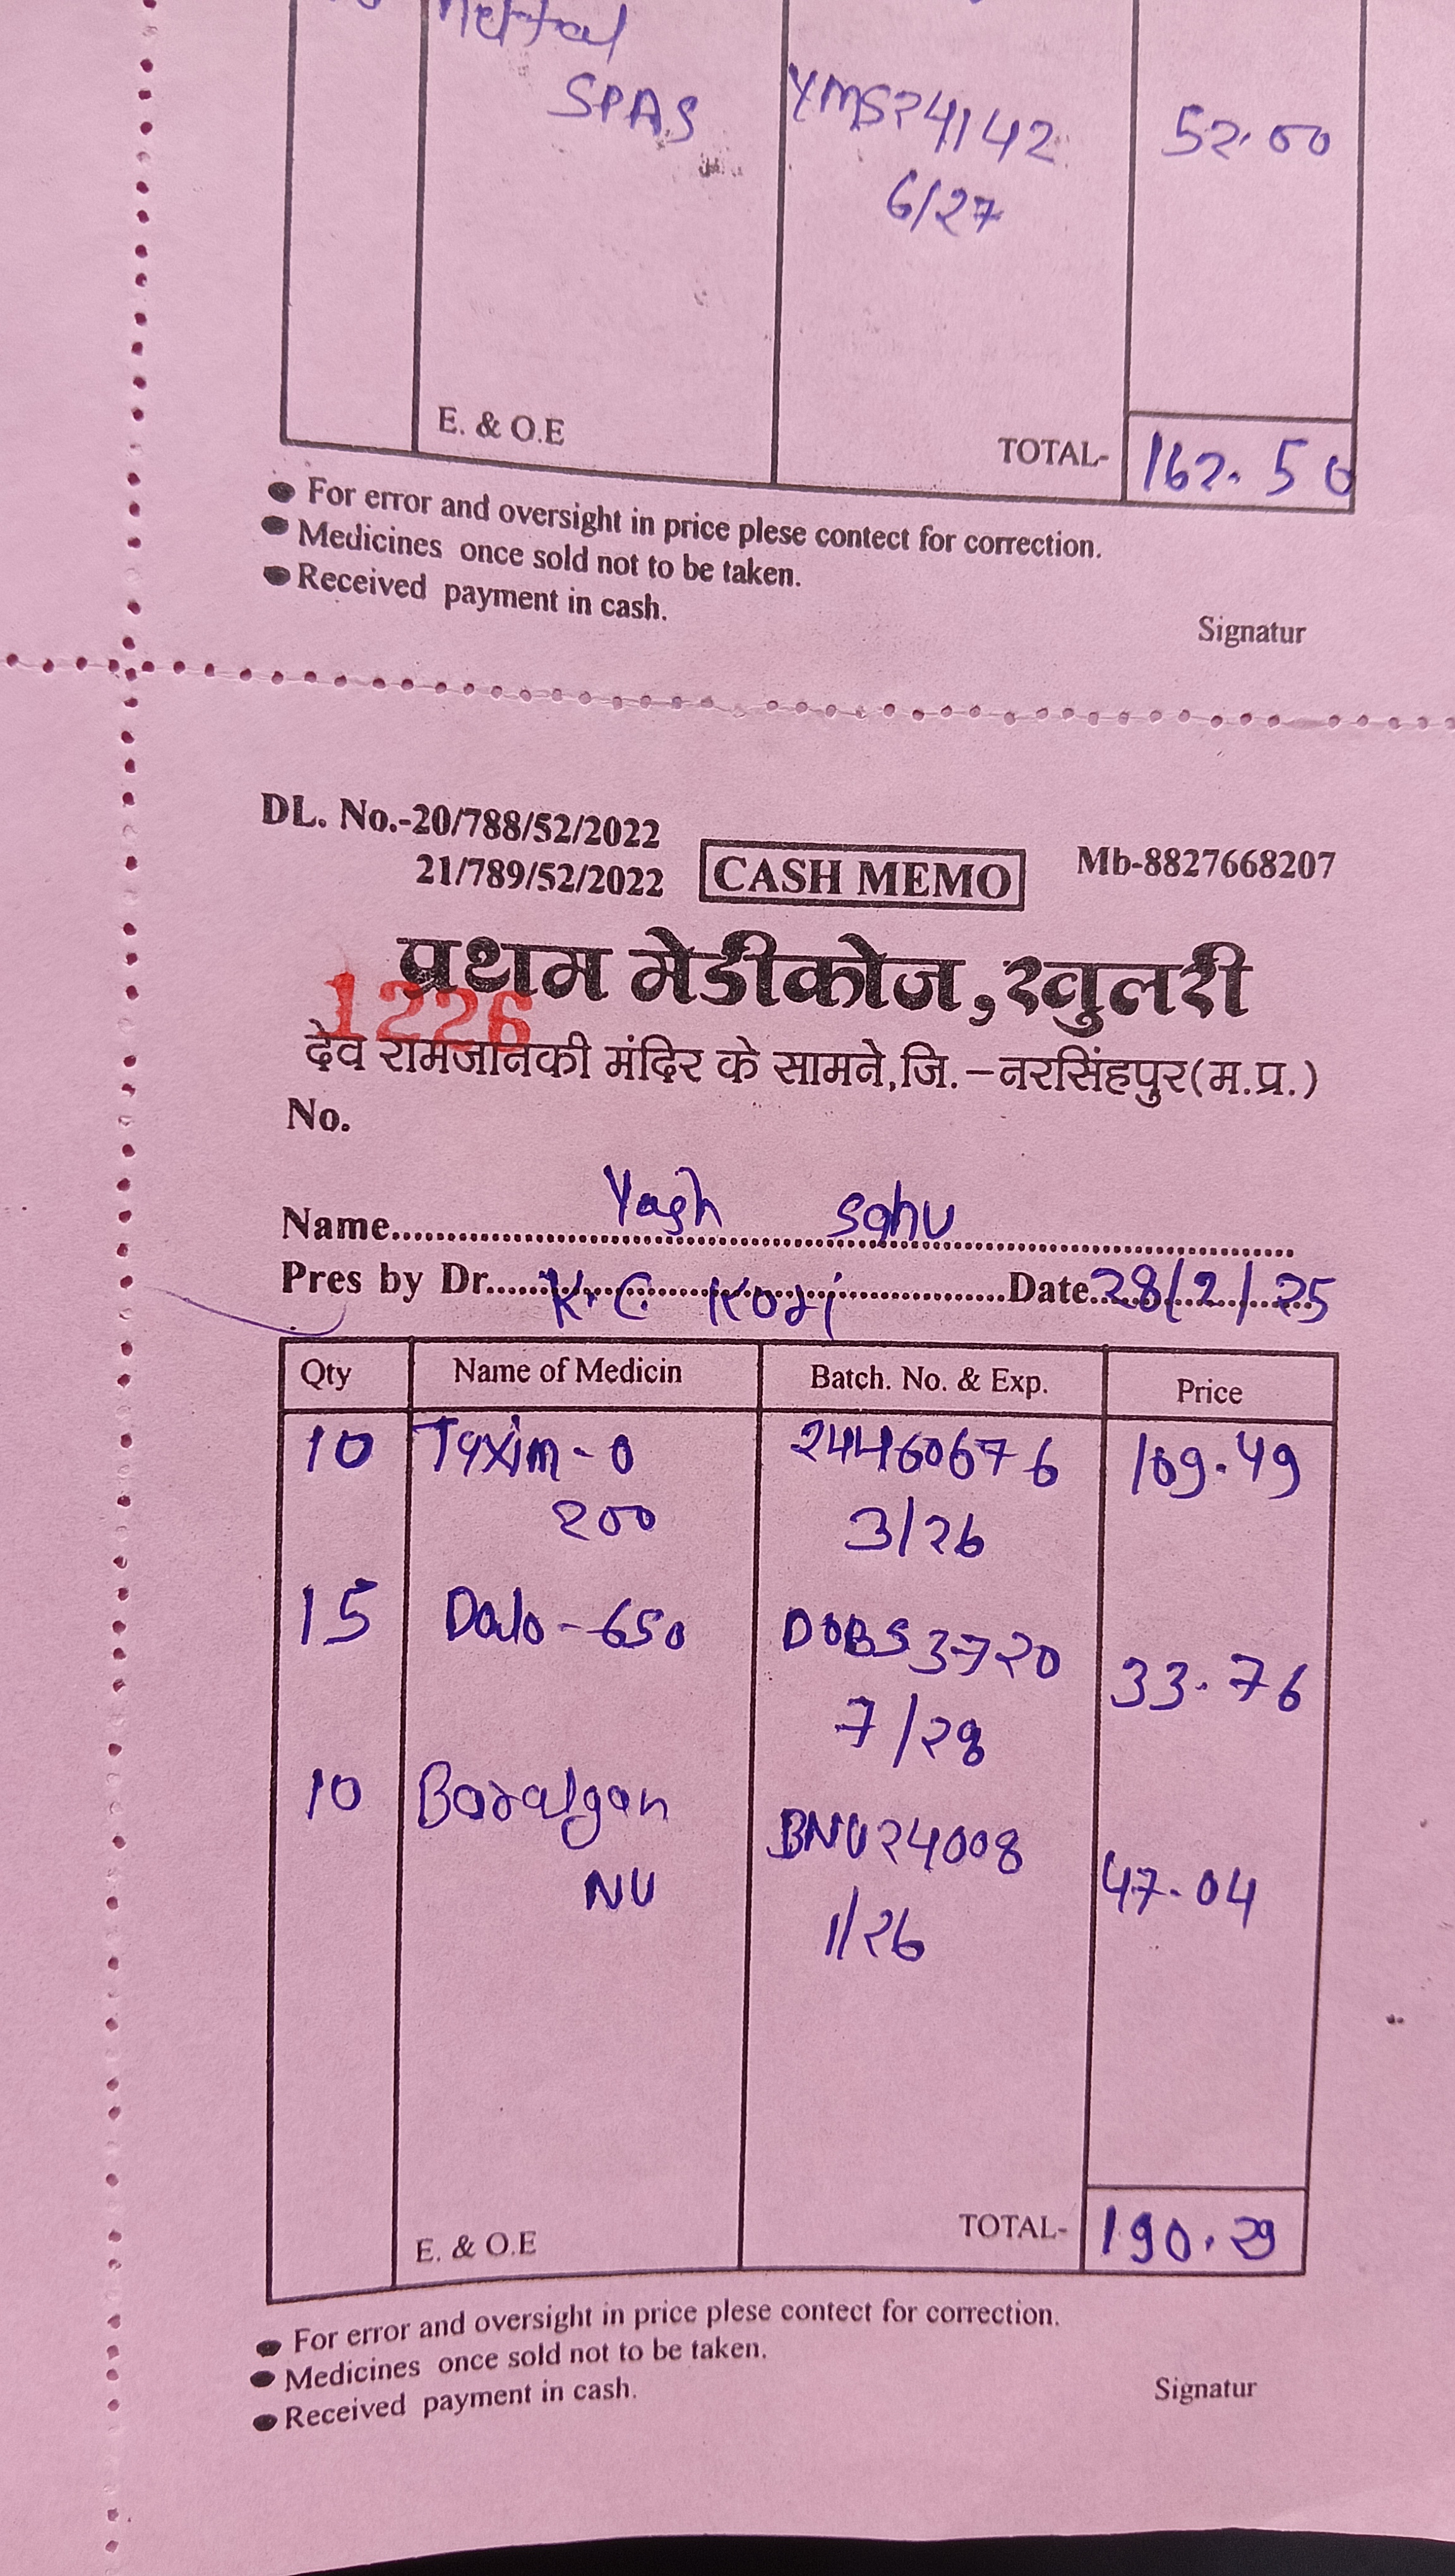 Meftal
SPAS YMS24142 52.00
6/27
E. & O.E TOTAL- 162.50
● For error and oversight in price plese contect for correction.
● Medicines once sold not to be taken.
● Received payment in cash.
Signatur
DL. No.-20/788/52/2022
21/789/52/2022 CASH MEMO Mb-8827668207
प्रथम मेडीकोज,खुलरी
1226
देव रामजानकी मंदिर के सामने,जि.–नरसिंहपुर(म.प्र.)
No.
Name Yash Sahu
Pres by Dr. K.C. Kori Date 28/2/25
Qty Name of Medicin Batch. No. & Exp. Price
10 Taxim-O 24460676 109.49
200 3/26
15 Dolo-650 DOBS3720 33.76
7/28
10 Baralgan BNU24008 47.04
NU 1/26
E. & O.E TOTAL- 190.29
● For error and oversight in price plese contect for correction.
● Medicines once sold not to be taken.
● Received payment in cash.
Signatur